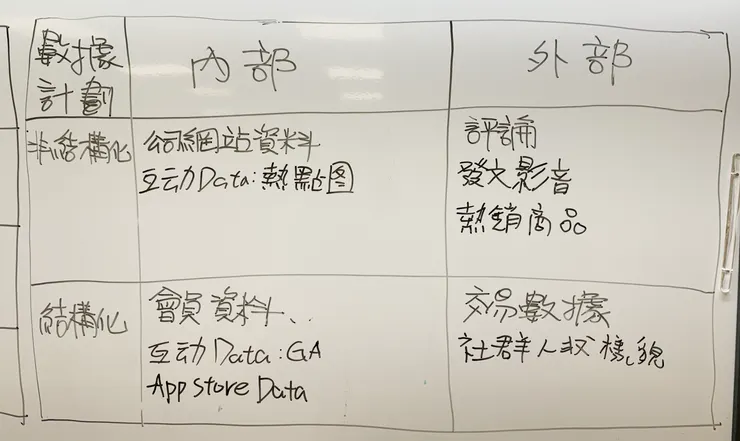 數據
計劃
內部
外部
非結構化
公司網站資料
互动Data:熱點图
評論
發文影音
熱銷商品
結構化
會員資料..
互动Data:GA
App Store Data
交易數據
社群人
貌